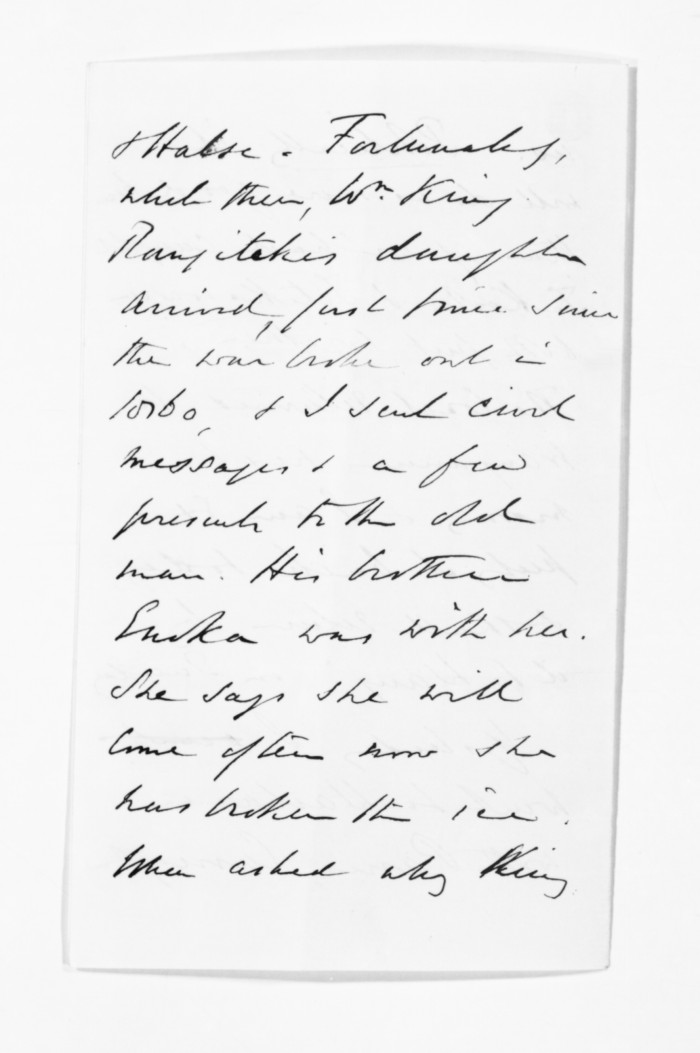 & Halse. Fortunately,
while there, Wm King
Rangitakis daughter
arrived, first time since
the war broke out in
1860, & I sent civil
messages & a few
presents to the old
man. His brother
Enoka was with her.
She says she will
come often now she
has broken the ice.
When asked why King